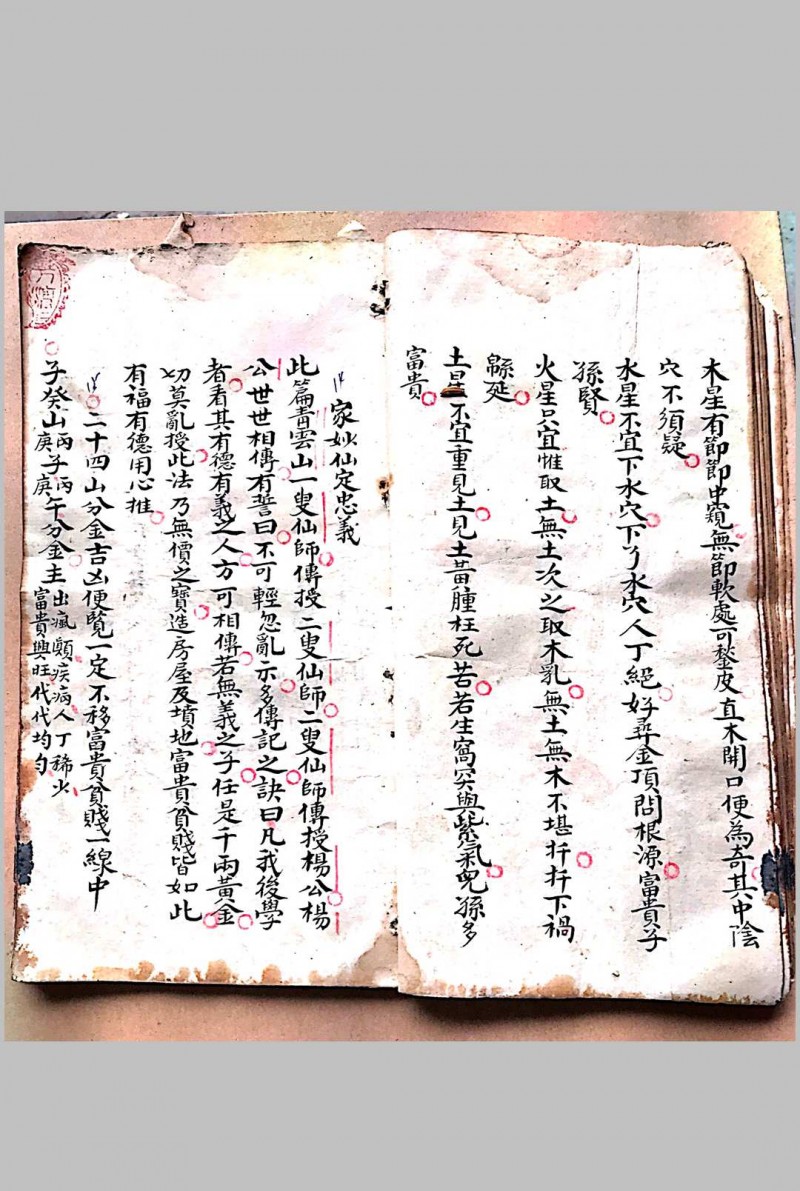 木星有節節中窺無節軟處可鑿皮直木開口便為奇其中陰
穴不須疑
水星不宜下水穴下了水穴人丁絕好尋金頂問根源富貴子
孫賢
火星只宜惟取土無土次之取木乳無土無木不堪扦扦下禍
緜延
土星不宜重見土見土黃腫枉死苦若生窩突與紫氣兒孫多
富貴
家妙仙定忠義
此篇青雲山一叟仙師傳授二叟仙師二叟仙師傳授楊公楊
公世世相傳有誓曰不可輕忽亂示多傳記之訣曰凡我後學
者看其有德有義之人方可相傳若無義之子任是千兩黃金
切莫亂授此法乃無價之寶造房屋及墳地富貴貧賤皆如此
有福有德用心推
二十四山分金吉凶便覽一定不移富貴貧賤一線中
子癸山丙子丙午分金主出瘋顛疾病人丁稀少
庚子庚午分金主富貴興旺代代均勻